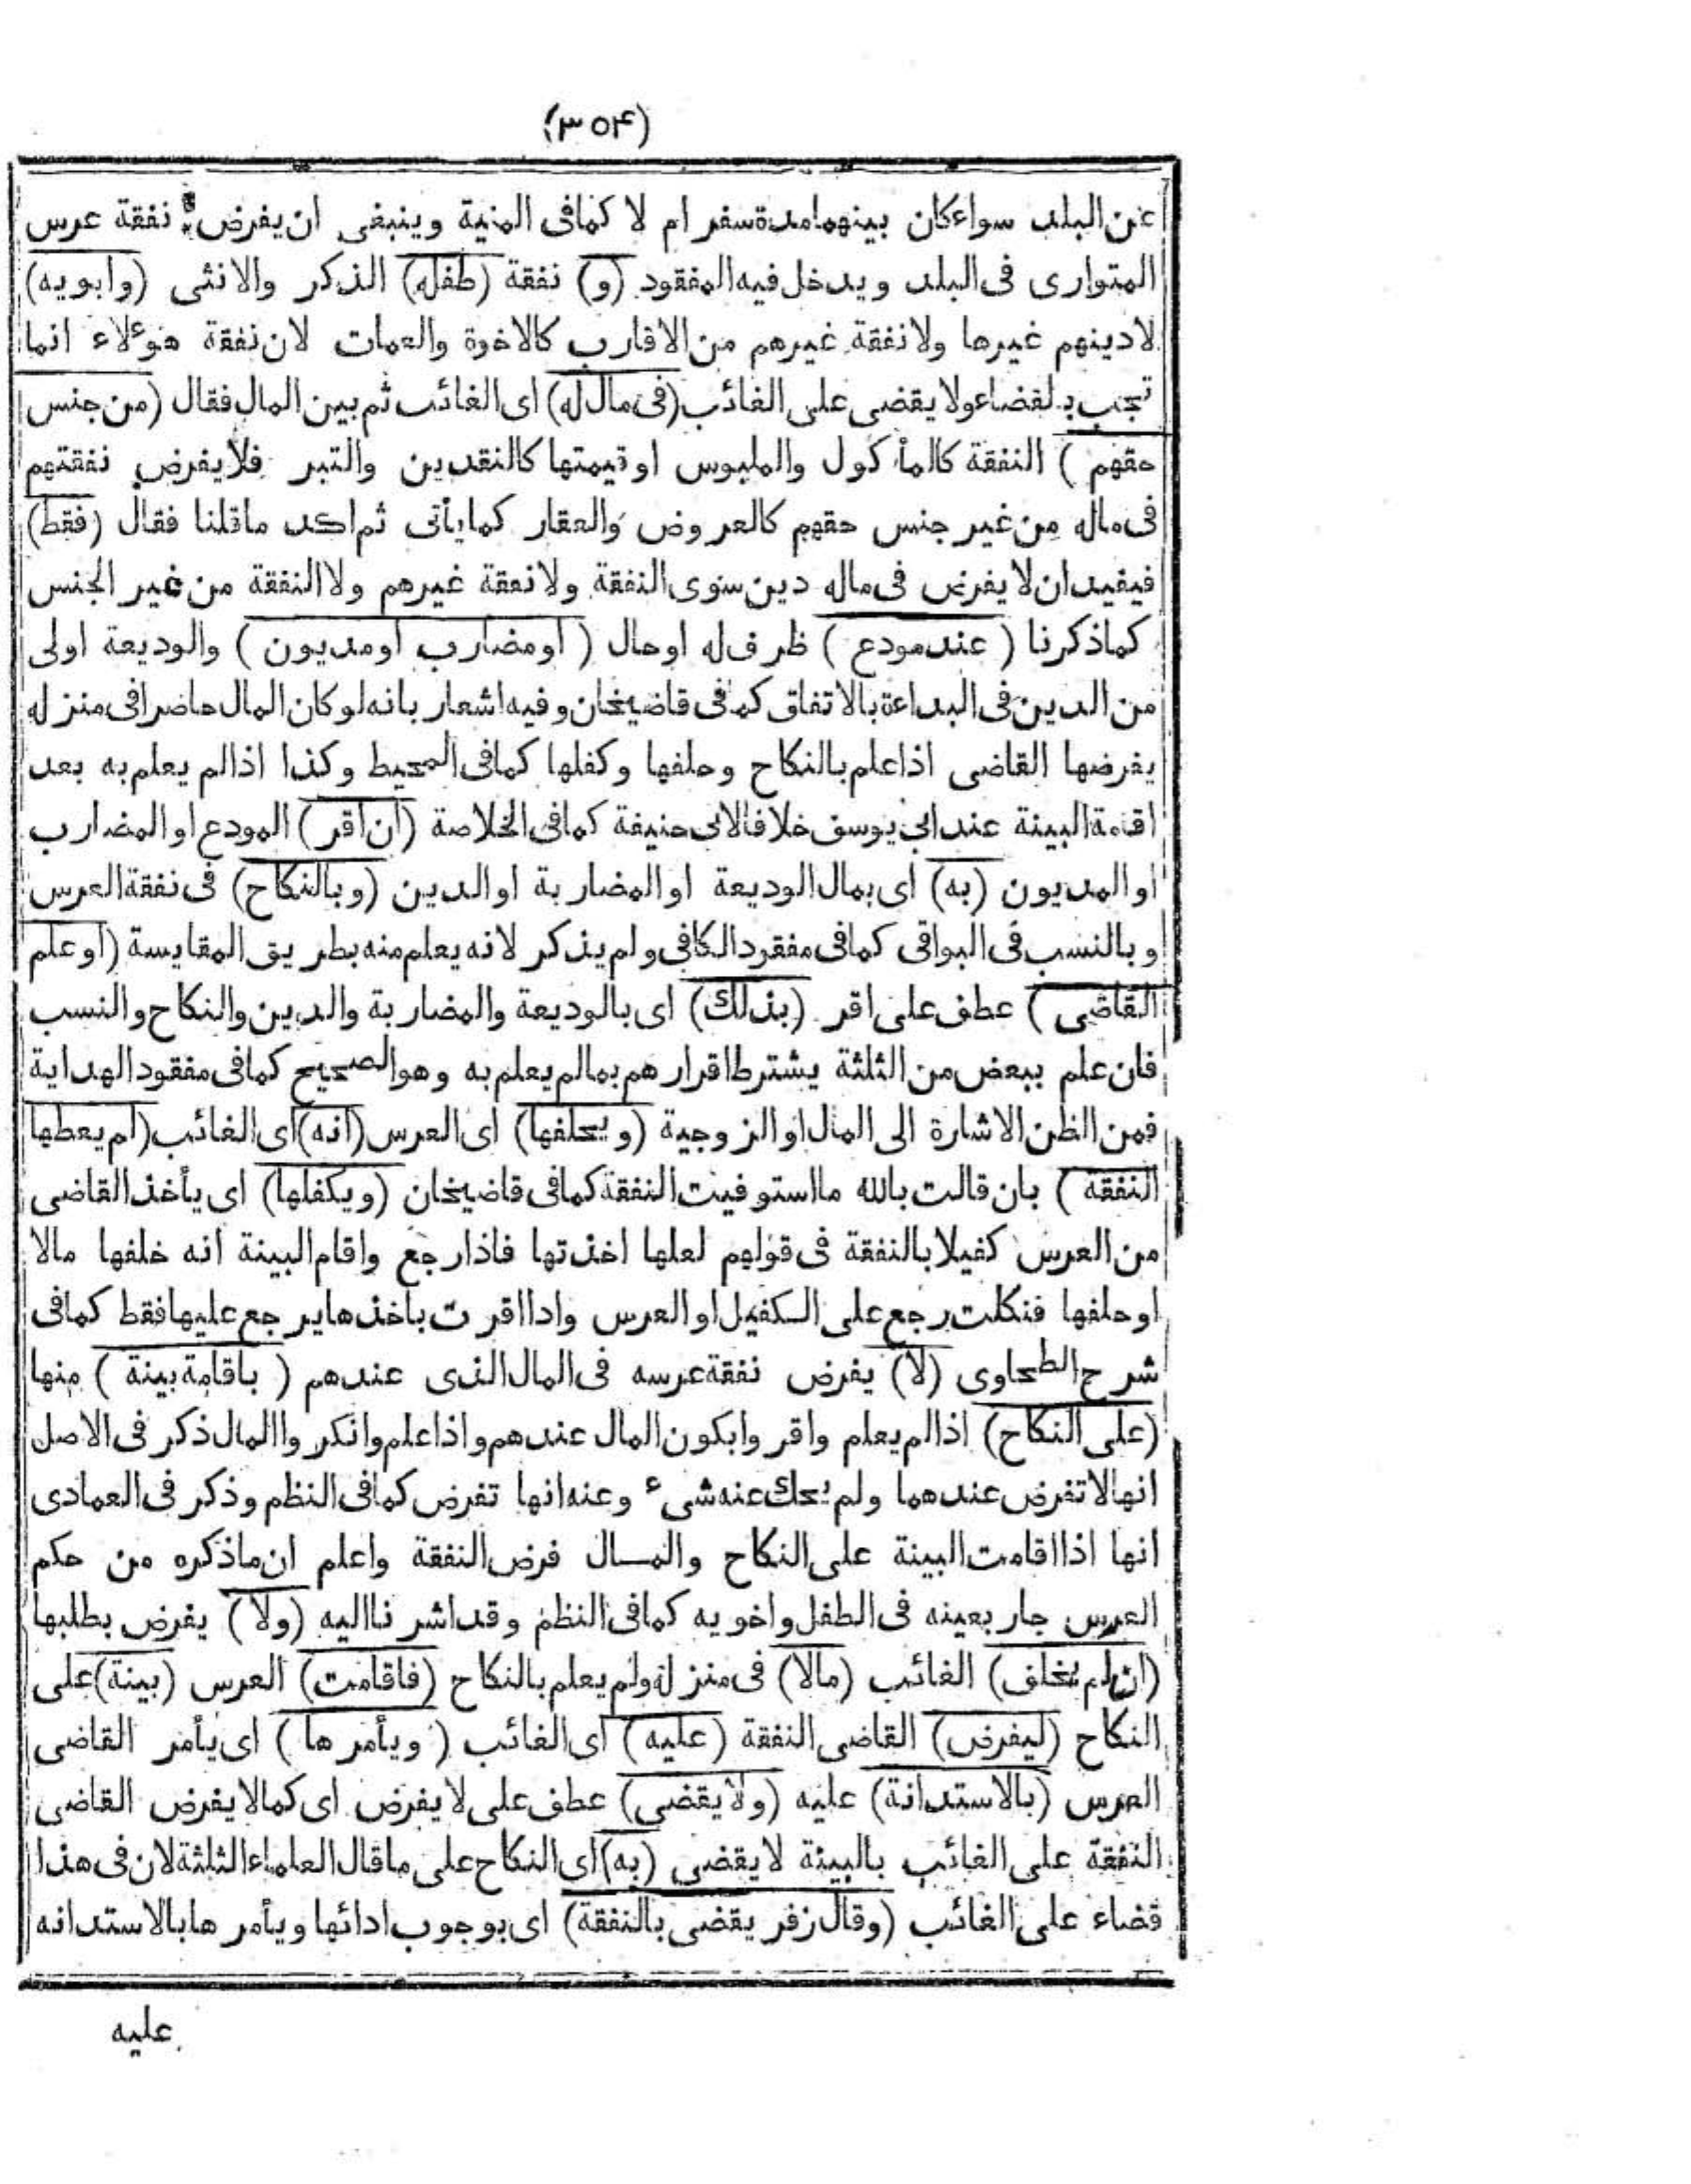 (٣٥۴)
عن البلد سواء كان بينهما مدة سفر ام لا كما فى المنية وينبغى ان يفرض نفقة عرس
المتوارى فى البلد ويدخل فيه المفقود (و) نفقة (طفله) الذكر والانثى (وابويه)
لادينهم غيرها ولا نفقة غيرهم من الاقارب كالاخوة والعمات لان نفقة هؤلاء انما
تجب بالقضاء ولا يقضى على الغائب (فى مال له) اى الغائب ثم بين المال فقال (من جنس
حقهم) النفقة كالمأكول والملبوس او قيمتها كالنقدين والتبر فلا يفرض نفقتهم
فى ماله من غير جنس حقهم كالعروض والعقار كما يأتى ثم اكد ما قلنا فقال (فقط)
فيفيد ان لا يفرض فى ماله دين سوى النفقة ولا نفقة غيرهم ولا النفقة من غير الجنس
كما ذكرنا (عند مودع) ظرف له او حال (او مضارب او مديون) والوديعة اولى
من الدين فى البداءة بالاتفاق كما فى قاضيخان وفيه اشعار بانه لو كان المال حاضرا فى منزله
يفرضها القاضى اذا علم بالنكاح وحلفها وكفلها كما فى المحيط وكذا اذا لم يعلم به بعد
اقامة البينة عند ابى يوسف خلافا لابى حنيفة كما فى الخلاصة (ان اقر) المودع او المضارب
او المديون (به) اى بمال الوديعة او المضاربة او الدين (وبالنكاح) فى نفقة العرس
وبالنسب فى البواقى كما فى مفقود الكافى ولم يذكر لانه يعلم منه بطريق المقايسة (او علم
القاضى) عطف على اقر (بذلك) اى بالوديعة والمضاربة والدين والنكاح والنسب
فان علم ببعض من الثلثة يشترط اقرارهم بما لم يعلم به وهو الصحيح كما فى مفقود الهداية
فمن الظن الاشارة الى المال او الزوجية (ويحلفها) اى العرس (انه) اى الغائب (لم يعطها
النفقة) بان قالت بالله ما استوفيت النفقة كما فى قاضيخان (ويكفلها) اى يأخذ القاضى
من العرس كفيلا بالنفقة فى قولهم لعلها اخذتها فاذا رجع واقام البينة انه خلفها مالا
او حلفها فنكلت رجع على الكفيل او العرس واذا اقرت باخذها يرجع عليها فقط كما فى
شرح الطحاوى (لا) يفرض نفقة عرسه فى المال الذى عندهم (باقامة بينة) منها
(على النكاح) اذا لم يعلم واقروا بكون المال عندهم واذا علم وانكروا المال ذكر فى الاصل
انها لا تفرض عندهما ولم يحك عنه شىء وعنه انها تفرض كما فى النظم وذكر فى العمادى
انها اذا اقامت البينة على النكاح والمال فرض النفقة واعلم ان ما ذكره من حكم
العرس جار بعينه فى الطفل واخويه كما فى النظم وقد اشرنا اليه (ولا) يفرض بطلبها
(ان لم يخلف) الغائب (مالا) فى منزله ولم يعلم بالنكاح (فاقامت) العرس (بينة) على
النكاح (ليفرض) القاضى النفقة (عليه) اى الغائب (ويأمرها) اى يأمر القاضى
العرس (بالاستدانة) عليه (ولا يقضى) عطف على لا يفرض اى كما لا يفرض القاضى
النفقة على الغائب بالبينة لا يقضى (به) اى النكاح على ما قال العلماء الثلثة لان فى هذا
قضاء على الغائب (وقال زفر يقضى بالنفقة) اى بوجوب ادائها ويأمرها بالاستدانه
عليه